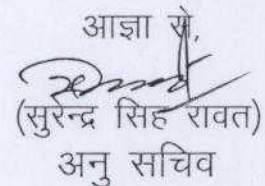 आज्ञा से,
(सुरेन्द्र सिंह रावत)
अनु सचिव